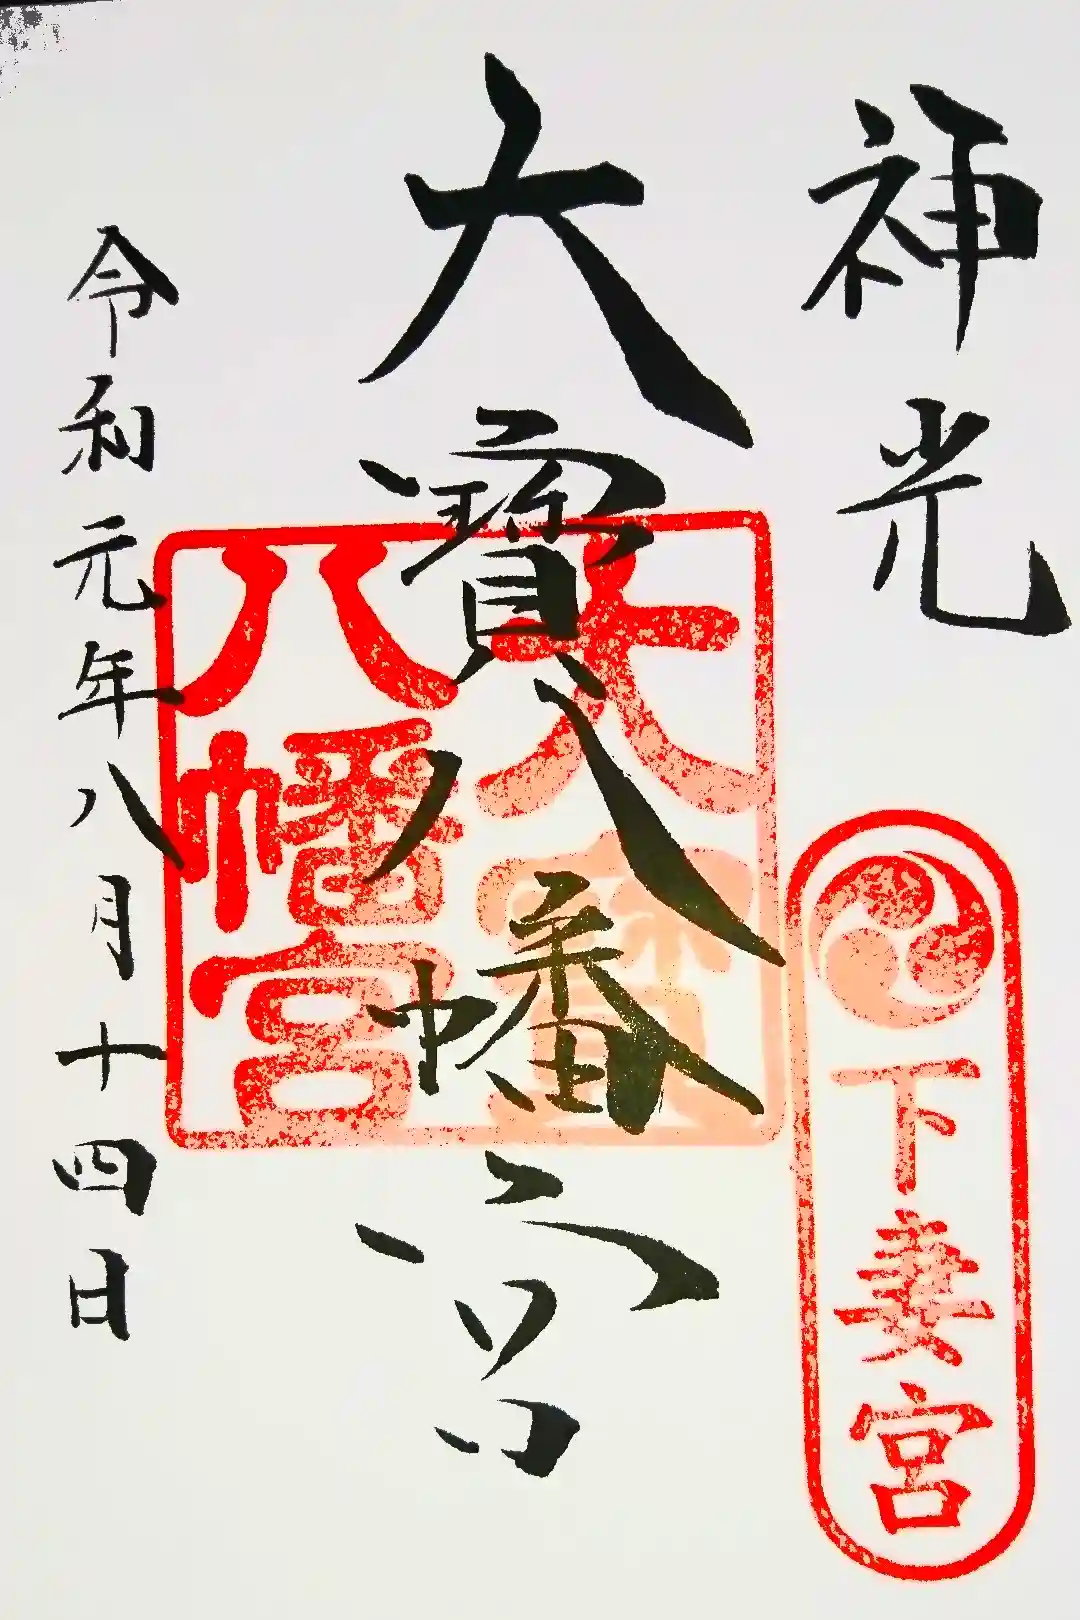 神光
下妻宮
大寶八幡宮
大寶
八幡宮
令和元年八月十四日